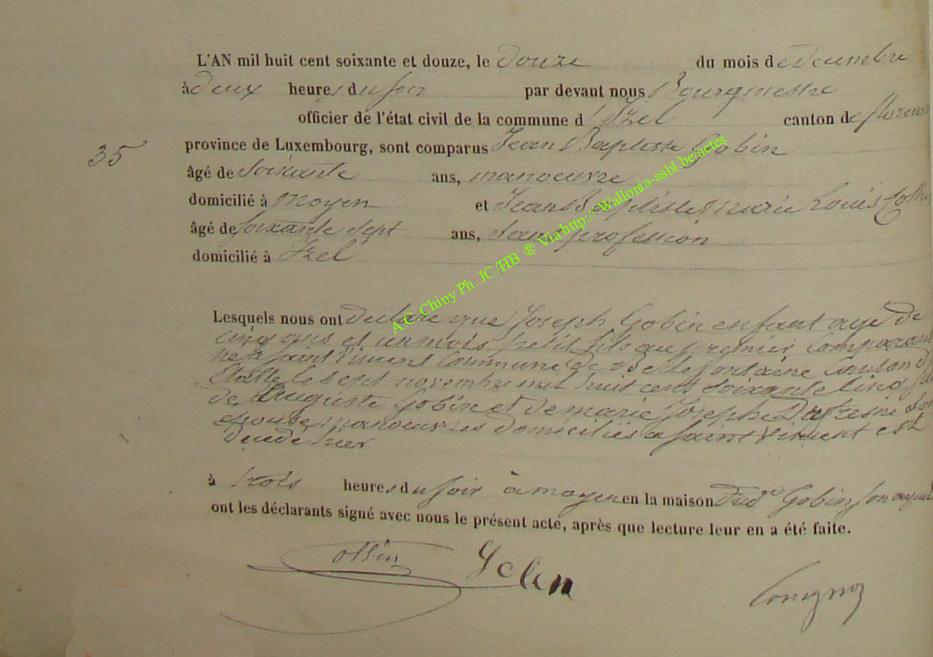 L'AN mil huit cent soixante et douze, le douze du mois de décembre
à deux heures du soir par devant nous Bourgmestre
officier de l'état civil de la commune d'Izel canton de
35
province de Luxembourg, sont comparus Jean Baptiste Gobin
âgé de soixante ans, manoeuvre
domicilié à moyen et Jean Baptiste marie Louis
âgé de soixante sept ans, sans profession
domicilié à Izel
A.C. Chiny Ph. JC /HB ® Via http:// Wallonia-asbl.be/actes
Lesquels nous ont déclaré que Joseph Gobin enfant agé de
cinq ans et un mois petit fils au premier comparant
né à saint vincent commune de Bellefontaine Canton d'
Etalle le sept novembre mil huit cent soixante cinq fils
de Auguste Gobin et de marie Joseph son
epouse manoeuvres domiciliés a saint vincent est
décédé hier
à trois heures du soir à moyen en la maison du dt Gobin son ayeul
ont les déclarants signé avec nous le présent acte, après que lecture leur en a été faite.